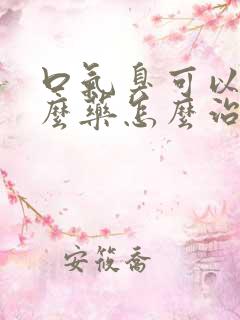 口氣臭可以
麼藥怎麼治
安筱喬